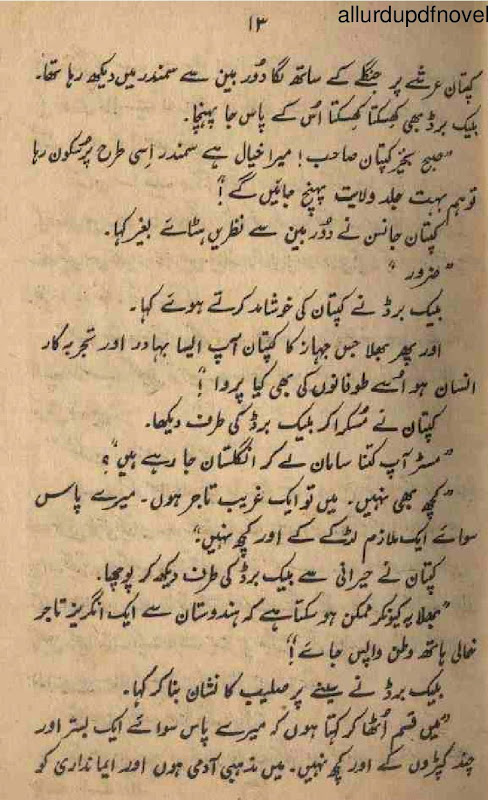 allurdupdfnovel
۱۳
کپتان عرشے پر جنگلے کے ساتھ لگا دُور بین سے سمندر میں دیکھ رہا تھا۔
بلیک برڈ بھی کھسکتا کھسکتا اُس کے پاس جا پہنچا۔
"صبح بخیر کپتان صاحب! میرا خیال ہے سمندر اِسی طرح پُرسکون رہا
تو ہم بہت جلد ولایت پہنچ جائیں گے!"
کپتان جانسن نے دُور بین سے نظریں ہٹائے بغیر کہا۔
"ضرور"
بلیک برڈ نے کپتان کی خوشامد کرتے ہوئے کہا۔
اور پھر بھلا جس جہاز کا کپتان آپ ایسا بہادر اور تجربہ کار
انسان ہو اُسے طوفانوں کی بھی کیا پروا!"
کپتان نے مُسکرا کر بلیک برڈ کی طرف دیکھا۔
"مسٹر آپ کتنا سامان لے کر انگلستان جا رہے ہیں"؟
"کچھ بھی نہیں۔ میں تو ایک غریب تاجر ہوں۔ میرے پاس
سوائے ایک ملازم لڑکے کے اور کچھ نہیں۔"
کپتان نے حیرانی سے بلیک برڈ کی طرف دیکھ کر پوچھا۔
"بھلا یہ کیونکر ممکن ہو سکتا ہے کہ ہندوستان سے ایک انگریز تاجر
خالی ہاتھ وطن واپس جائے!"
بلیک برڈ نے سینے پر صلیب کا نشان بنا کر کہا۔
"میں قسم اُٹھا کر کہتا ہوں کہ میرے پاس سوائے ایک بستر اور
چند کپڑوں کے اور کچھ نہیں۔ میں مذہبی آدمی ہوں اور ایمانداری کو